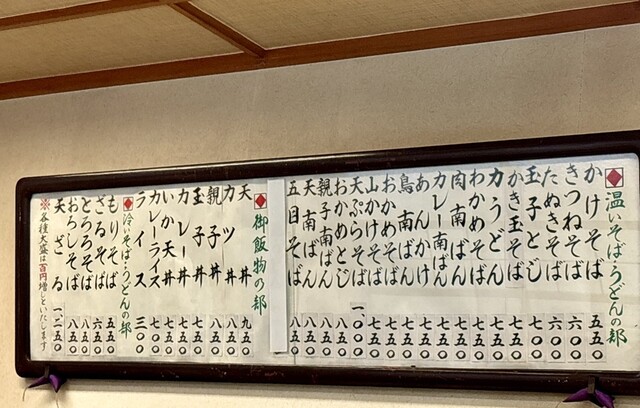 温いそば・うどんの部
かけそば 五五〇
きつねそば 六五〇
たぬきそば 六五〇
玉子とじ 七〇〇
かき玉そば 七五〇
力うどん 七五〇
わかめそば 七五〇
肉南ばん 七五〇
カレー南ばん 七五〇
あんかけ 七五〇
鳥南ばん 七五〇
おかめそば 七五〇
山かけそば 七五〇
天ぷらそば 一、〇〇〇
おかめとじ 八五〇
親子南ばん 八五〇
天南ばん 八五〇
五目そば 八五〇
御飯物の部
天丼 九五〇
カツ丼 八五〇
親子丼 八五〇
玉子丼 七五〇
カレー丼 七五〇
いか天丼 七五〇
カレーライス 七〇〇
ライス 三〇〇
冷いそば・うどんの部
もりそば 五五〇
ざるそば 六五〇
とろろそば 八五〇
おろしそば 八五〇
天ざる 一、二五〇
※各種大盛は百円増しといたします